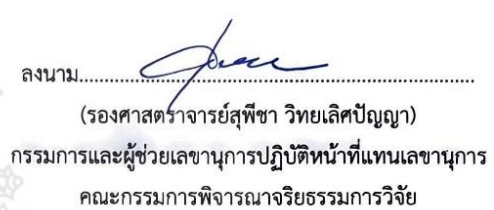 ลงนาม........................................................................
(รองศาสตราจารย์สุพีชา วิทยเลิศปัญญา)
กรรมการและผู้ช่วยเลขานุการปฏิบัติหน้าที่แทนเลขานุการ
คณะกรรมการพิจารณาจริยธรรมการวิจัย